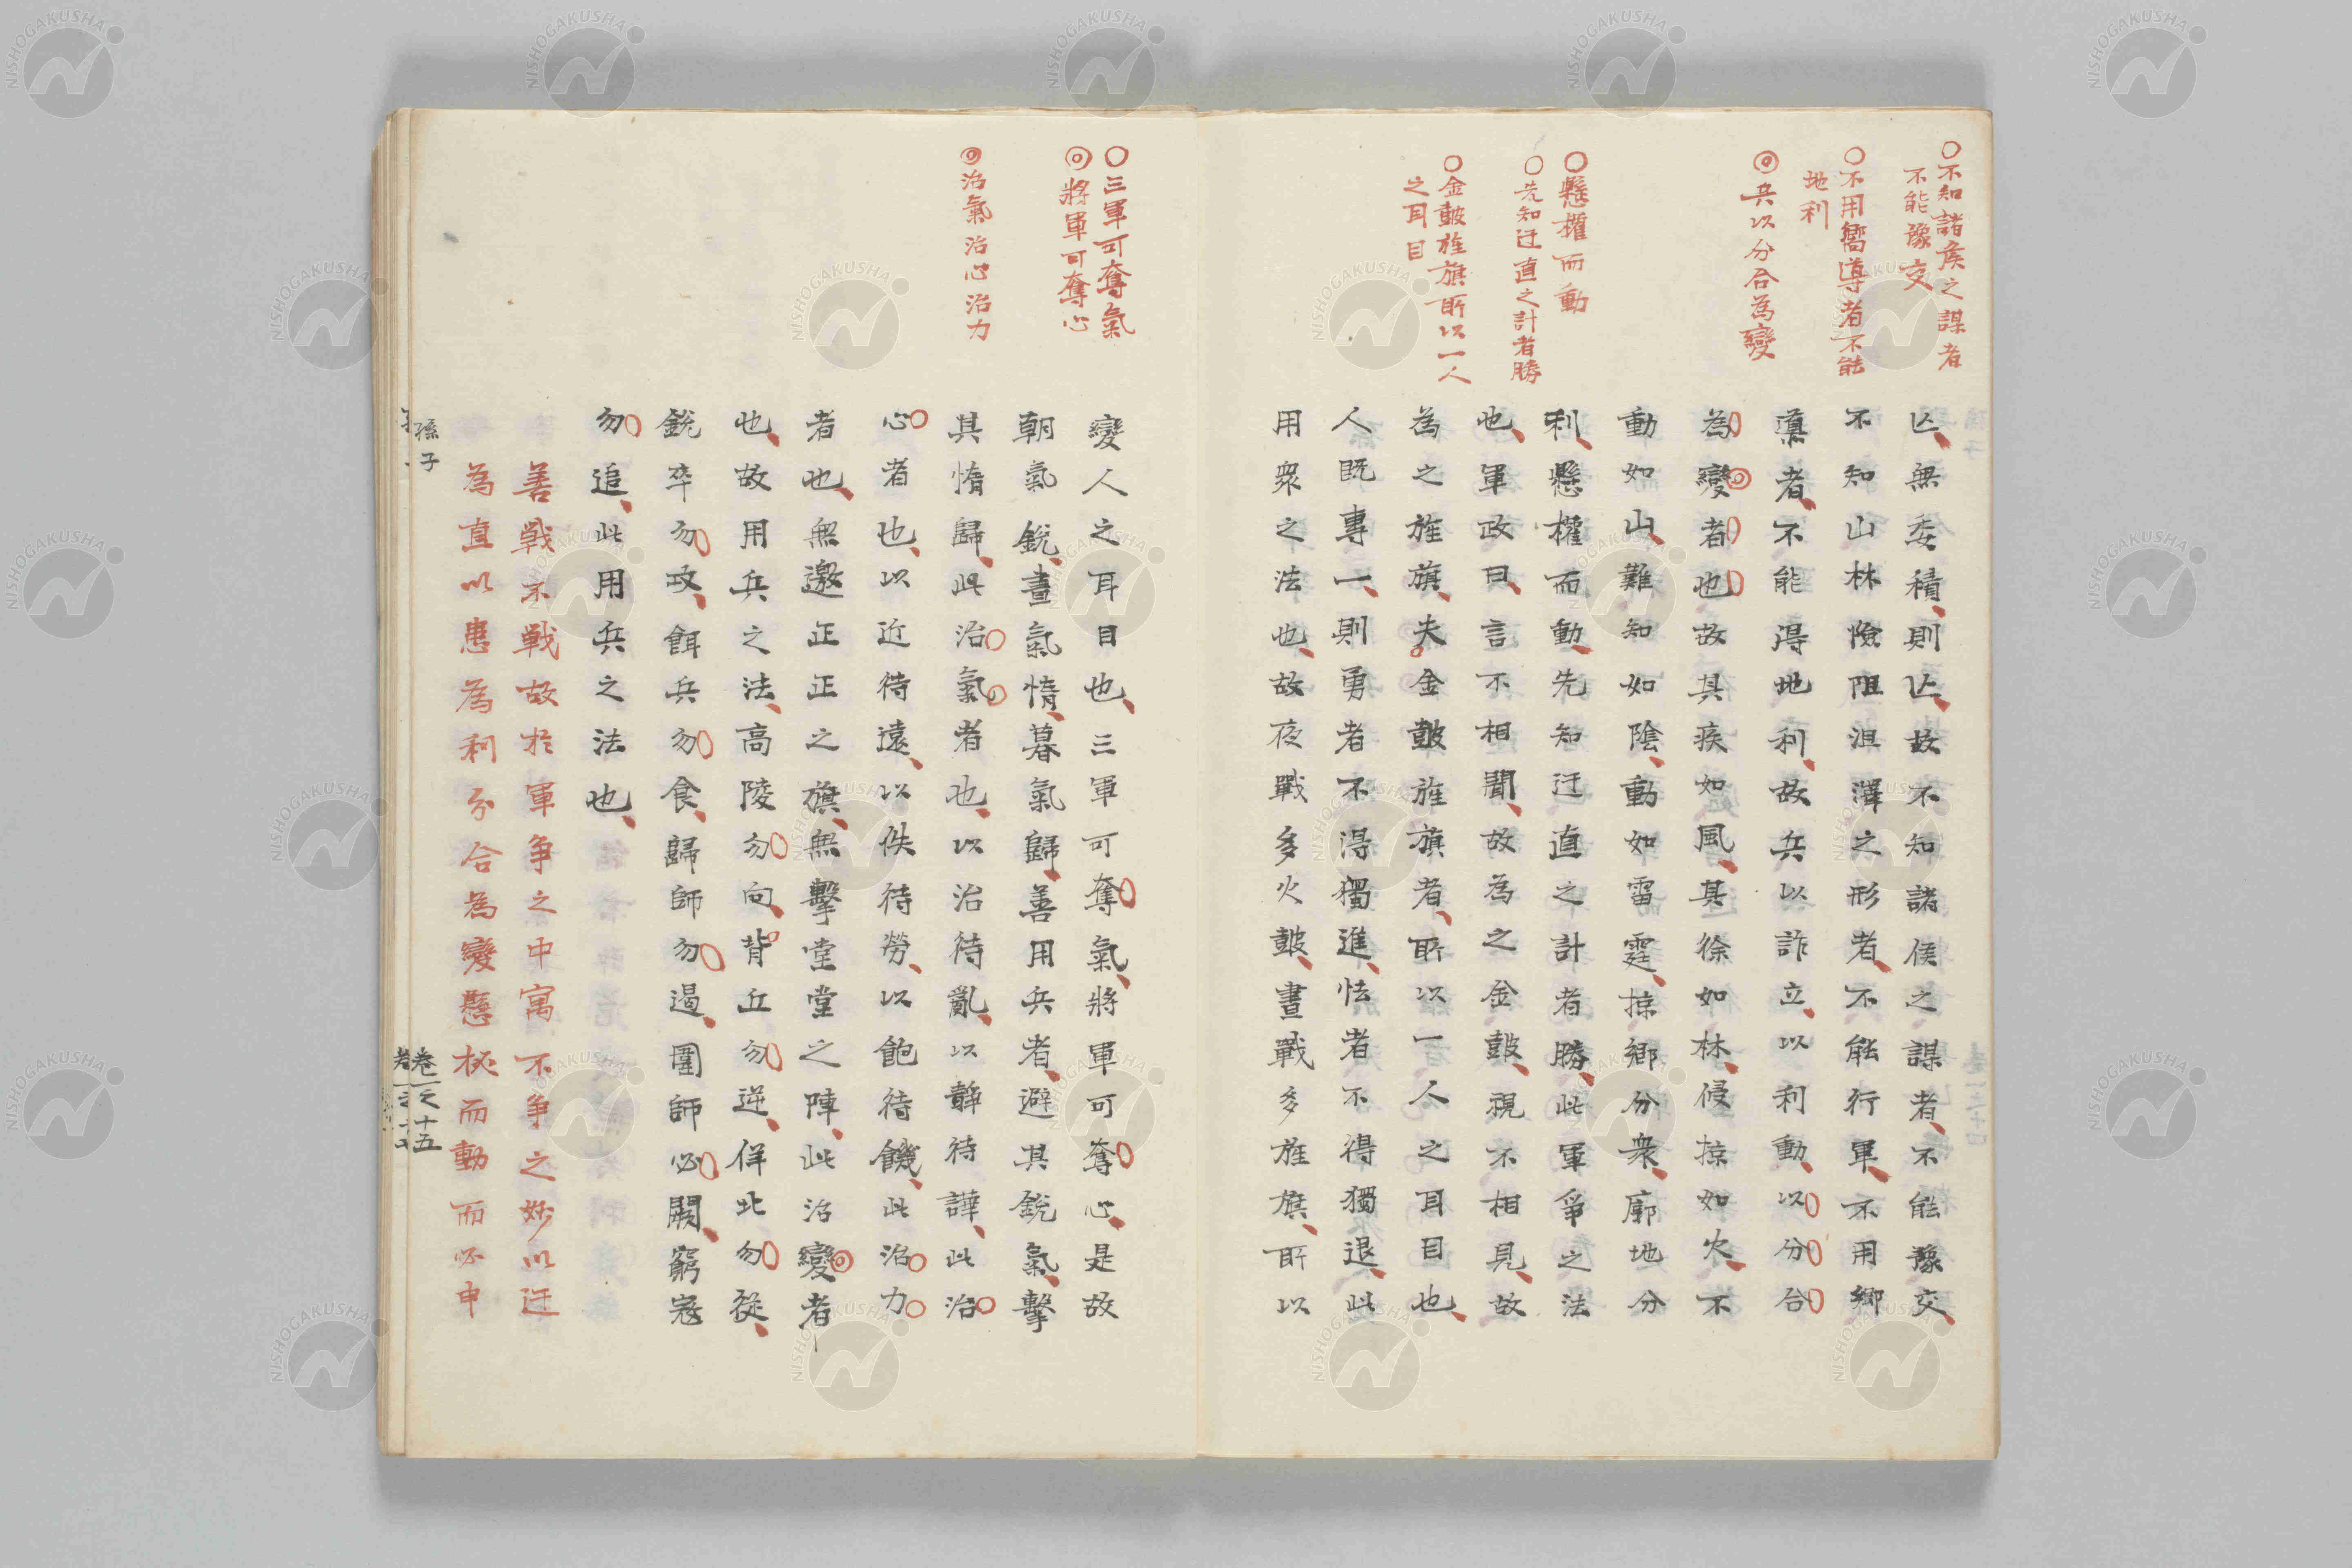 ○不知諸侯之謀者
不能豫交
○不用嚮導者不能
地利
◎兵以分合為變
○懸權而動
○先知迂直之計者勝
○金皷旌旗所以一人
之耳目
亾無委積則亾故不知諸侯之謀者不能豫交
不知山林險阻沮澤之形者不能行軍不用鄉
導者不能得地利故兵以詐立以利動以分合
為變者也故其疾如風其徐如林侵掠如火不
動如山難知如陰動如雷霆掠鄉分衆廓地分
利懸權而動先知迂直之計者勝此軍爭之法
也軍政曰言不相聞故為之金皷視不相見故
為之旌旗夫金皷旌旗者所以一人之耳目也
人既專一則勇者不得獨進怯者不得獨退此
用衆之法也故夜戰多火皷晝戰多旌旗所以
○三軍可奪氣
◎將軍可奪心
◎治氣治心治力
變人之耳目也三軍可奪氣將軍可奪心是故
朝氣銳晝氣惰暮氣歸善用兵者避其銳氣擊
其惰歸此治氣者也以治待亂以靜待譁此治
心者也以近待遠以佚待勞以飽待饑此治力
者也無邀正正之旗無擊堂堂之陣此治變者
也故用兵之法高陵勿向背丘勿逆佯北勿從
銳卒勿攻餌兵勿食歸師勿遏圍師必闕窮寇
勿追此用兵之法也
善戦不戦故於軍争之中寓不争之妙以迂
為直以患為利分合為變懸权而動而必中
孫子
卷一之十五
NISHOGAKUSHA